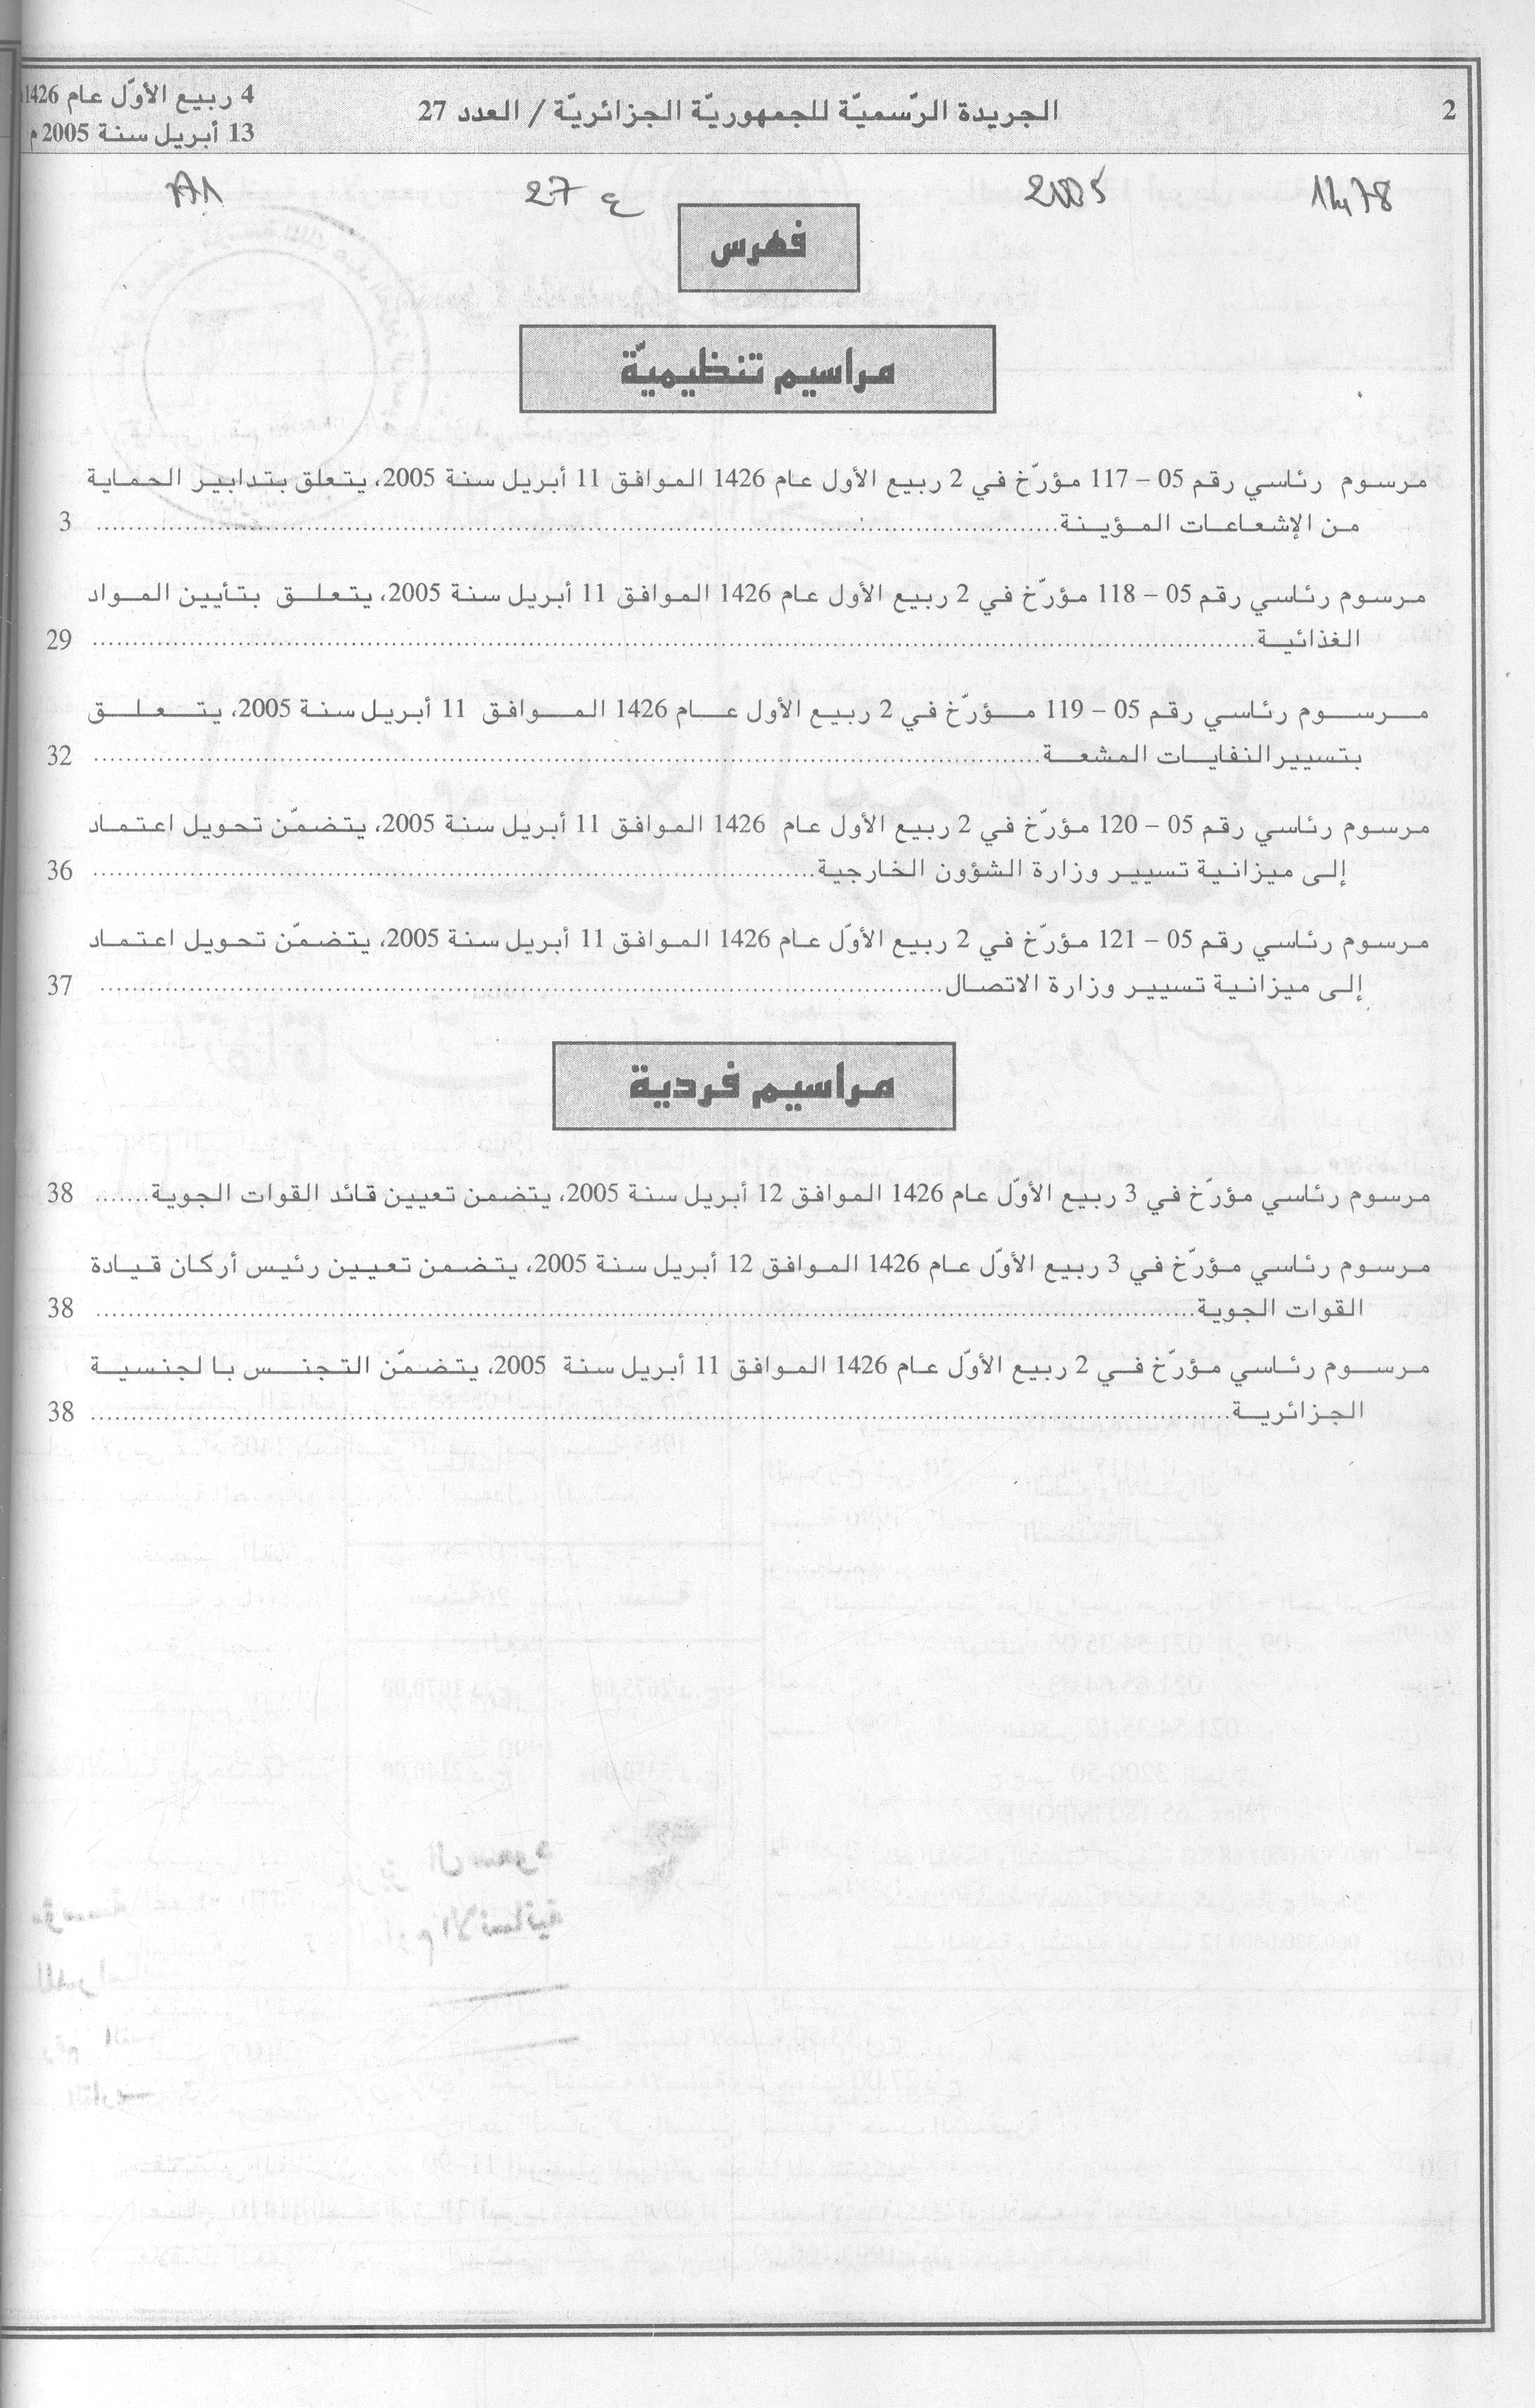 2
الجريدة الرّسميّة للجمهوريّة الجزائريّة / العدد 27
4 ربيع الأوّل عام 1426
13 أبريل سنة 2005 م
2005
27 ع
فهرس
مراسيم تنظيميّة
مرسوم رئاسي رقم 05 – 117 مؤرّخ في 2 ربيع الأول عام 1426 الموافق 11 أبريل سنة 2005، يتعلق بتدابير الحماية
من الإشعاعات المؤينة........................................ 3
مرسوم رئاسي رقم 05 – 118 مؤرّخ في 2 ربيع الأول عام 1426 الموافق 11 أبريل سنة 2005، يتعلق بتأيين المواد
الغذائية........................................ 29
مرسوم رئاسي رقم 05 – 119 مؤرّخ في 2 ربيع الأول عام 1426 الموافق 11 أبريل سنة 2005، يتعلق
بتسيير النفايات المشعة........................................ 32
مرسوم رئاسي رقم 05 – 120 مؤرّخ في 2 ربيع الأول عام 1426 الموافق 11 أبريل سنة 2005، يتضمّن تحويل اعتماد
إلى ميزانية تسيير وزارة الشؤون الخارجية........................................ 36
مرسوم رئاسي رقم 05 – 121 مؤرّخ في 2 ربيع الأوّل عام 1426 الموافق 11 أبريل سنة 2005، يتضمّن تحويل اعتماد
إلى ميزانية تسيير وزارة الاتصال........................................ 37
مراسيم فردية
مرسوم رئاسي مؤرّخ في 3 ربيع الأوّل عام 1426 الموافق 12 أبريل سنة 2005، يتضمن تعيين قائد القوات الجوية....... 38
مرسوم رئاسي مؤرّخ في 3 ربيع الأوّل عام 1426 الموافق 12 أبريل سنة 2005، يتضمن تعيين رئيس أركان قيادة
القوات الجوية........................................ 38
مرسوم رئاسي مؤرّخ في 2 ربيع الأوّل عام 1426 الموافق 11 أبريل سنة 2005، يتضمّن التجنس بالجنسية
الجزائرية........................................ 38